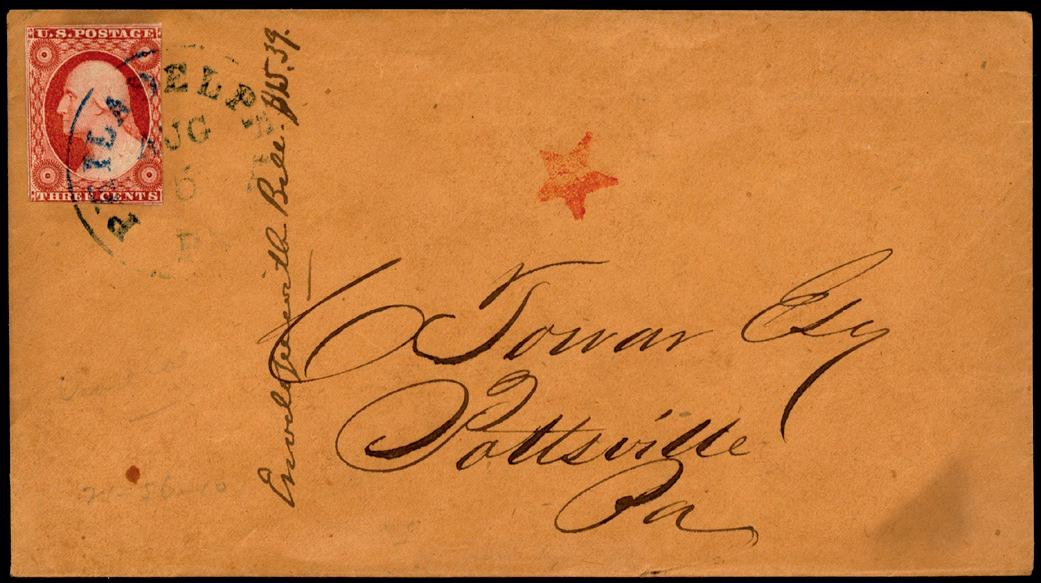 U.S. POSTAGE
THREE CENTS
PHILADELPHIA
AUG
6
Pa
Envelope with Bill. $15.39.
Towar Esq
Pottsville
Pa